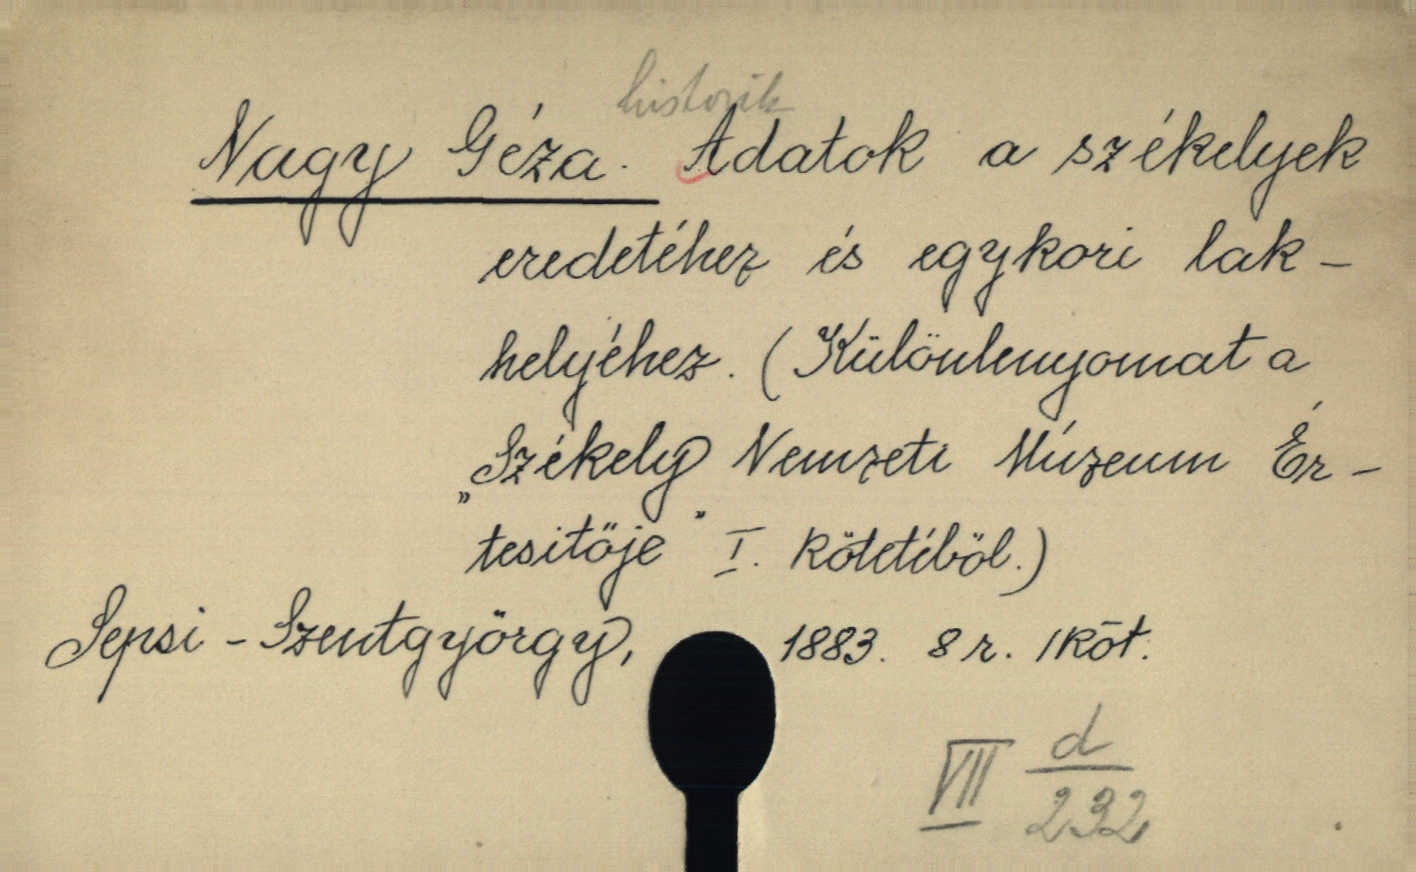 historik
Nagy Géza. Adatok a székelyek
eredetéhez és egykori lak-
helyéhez. (Különlenyomat a
„Székely Nemzeti Múzeum Ér-
tesitője" I. kötetéből.)
Sepsi-Szentgyörgy, 1883. 8 r. 1 köt.
VII d
232